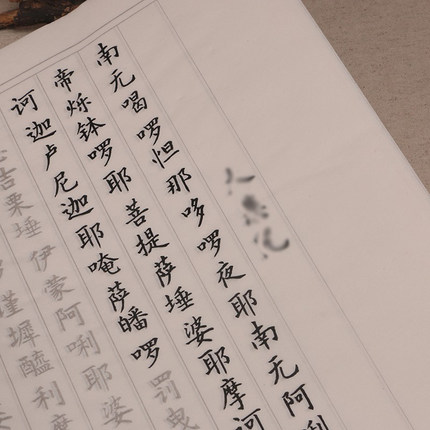 南无喝啰怛那哆啰夜耶南无阿唎
帝烁钵啰耶菩提萨埵婆耶摩诃
诃迦卢尼迦耶唵萨皤啰罚曳
吉栗埵伊蒙阿唎耶婆
谨墀醯利摩